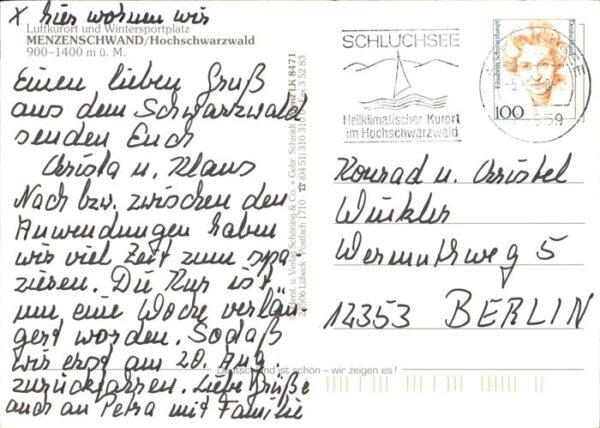 x hier wohnen wir
Luftkurort und Wintersportplatz
MENZENSCHWAND/Hochschwarzwald
900-1400 m ü. M.
Einen lieben Gruß
aus dem Schwarzwald
senden Euch
Christa u. Klaus
Nach bzw. zwischen den
Anwendungen haben
wir viel Zeit zum spa
zieren. Die Kur ist
um eine Woche verlän
gert worden. Sodaß
wir erst am 20. Aug.
zurückfahren. Liebe Grüße
auch an Petra mit Familie
Schöning & Co. + Gebr. Schmidt
Lübeck · Postfach 1710 · ☎ (04 51) 310 31
LK 8471
SCHLUCHSEE
Heilklimatischer Kurort
im Hochschwarzwald
Elisabeth Schwarzhaupt
Deutschland
100
Konrad u. Christel
Winkler
Wermuthweg 5
12353 BERLIN
Deutschland ist schön – wir zeigen es!